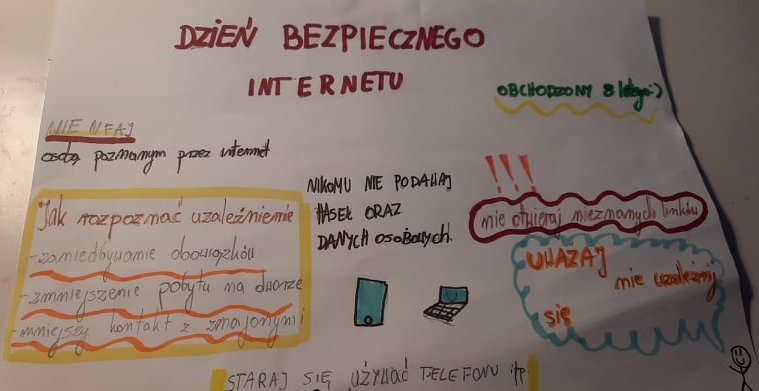 DZIEŃ BEZPIECZNEGO
INTERNETU
OBCHODZONY 8 lutego:)
NIE UFAJ
osobą poznanym przez internet
Jak rozpoznać uzależnienie
-zaniedbywanie obowiązków
-zmniejszenie pobytu na dworze
-mniejszy kontakt z znajomymi
NIKOMU NIE PODAWAJ
HASEŁ ORAZ
DANYCH OSOBOWYCH.
!!!
nie otwieraj nieznanych linków
UWAŻAJ
nie uzależnij
się
STARAJ SIĘ używać TELEFONU itp.